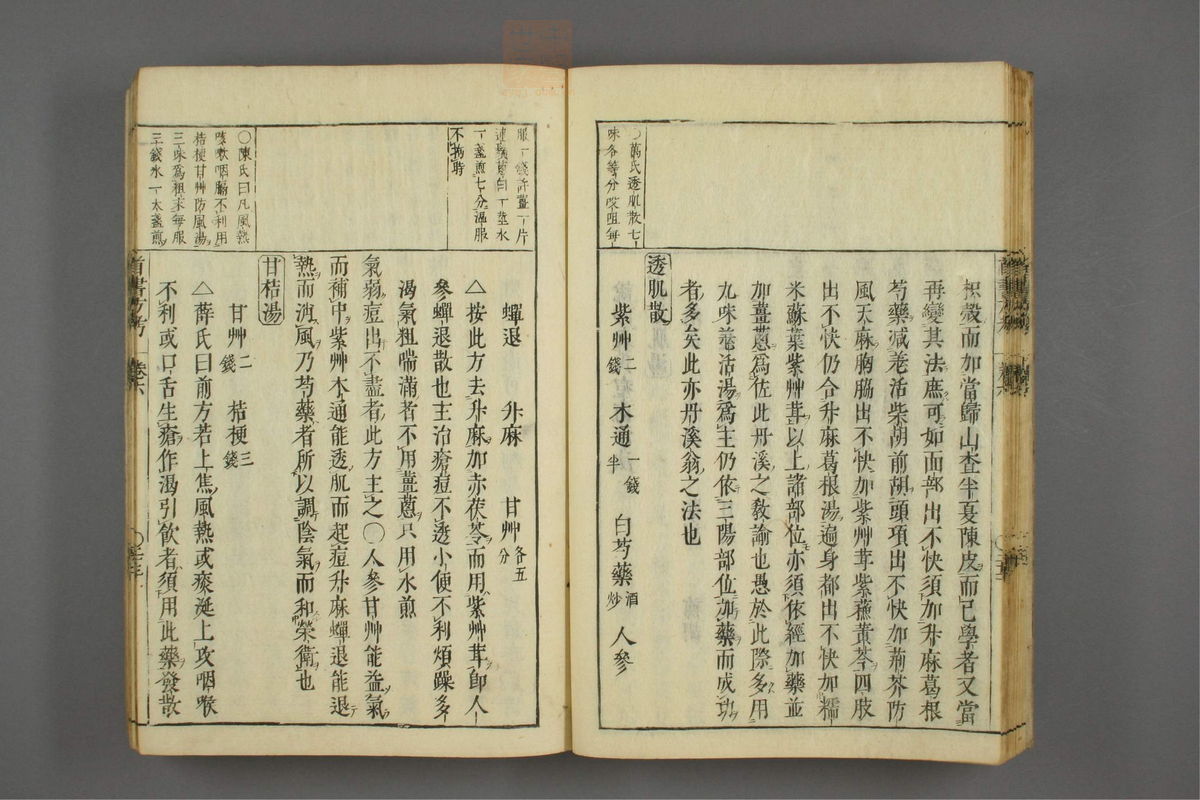 ○萬氏透肌散七
味各等分㕮咀每
枳殼而加當歸山查半夏陳皮而已學者又當
再變其法庶可如面部出不快須加升麻葛根
芍藥減羗活柴胡前胡頭項出不快加荊芥防
風天麻胸脇出不快加紫艸茸紫蘓黃芩四肢
出不快仍合升麻葛根湯遍身都出不快加糯
米蘇葉紫艸茸以上諸部位亦須依經加藥並
加薑蔥爲佐此丹溪之敎諭也愚於此際多用
九味羗活湯爲主仍依三陽部位加藥而成功
者多矣此亦丹溪翁之法也
透肌散
紫艸二錢 木通一錢半 白芍藥酒炒 人參
服一錢許薑一片
連鬚蔥白一莖水
一盞煎七分溫服
不拘時
○陳氏曰凡風熱
咳嗽咽膈不利用
桔梗甘艸防風湯
三味爲粗末每服
三錢水一大盞煎
蟬退 升麻 甘艸各五分
△按此方去升麻加赤茯苓而用紫艸茸卽人
參蟬退散也主治瘡痘不透小便不利煩躁多
渴氣粗喘滿者不用薑蔥只用水煎
氣弱痘出不盡者此方主之○人參甘艸能益氣
而補中紫艸木通能透肌而起痘升麻蟬退能退
熱而消風乃芍藥者所以調陰氣而和榮衛也
甘桔湯
甘艸二錢 桔梗三錢
△薛氏曰前方若上焦風熱或痰涎上攻咽喉
不利或口舌生瘡作渴引飲者須用此藥發散
首書方考 卷六